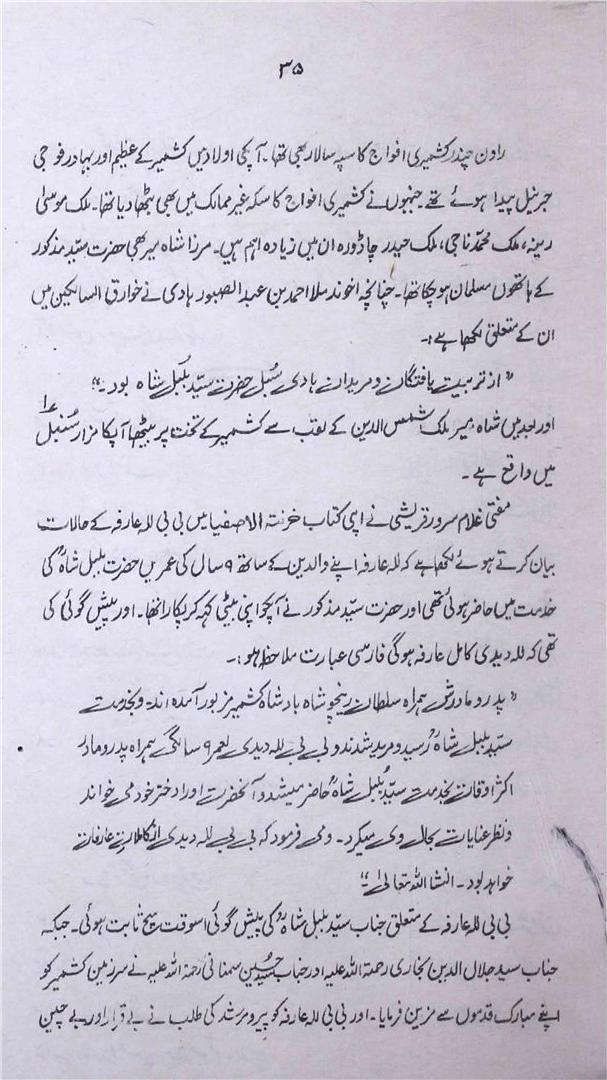 ۳۵
راون چندر کشمیری افواج کا سپہ سالار بھی تھا۔ آپکی اولاد میں کشمیر کے عظیم اور بہادر فوجی
جرنیل پیدا ہوئے تھے جنہوں نے کشمیری افواج کا سکہ غیر ممالک میں بھی بٹھا دیا تھا۔ ملک موسیٰ
رینہ، ملک محمد ناجی، ملک حیدر چاڈورہ ان میں زیادہ اہم ہیں۔ مرزا شاہ میر بھی حضرت سید مذکور
کے ہاتھوں مسلمان ہو چکا تھا۔ چنانچہ اخوند ملا احمد بن عبد الصبور ہادی نے خوارق السالکین میں
ان کے متعلق لکھا ہے:۔
"از تربیت یافتگان و مریدان ہادی سُبل حضرت سید بلبل شاہ بود۔"
اور بعد میں شاہ میر ملک شمس الدین کے لقب سے کشمیر کے تخت پر بیٹھا آپکا مزار سُنبل
میں واقع ہے۔
مفتی غلام سرور قریشی نے اپنی کتاب خزنتہ الاصفیا میں بی بی للہ عارفہ کے حالات
بیان کرتے ہوئے لکھا ہے کہ للہ عارفہ اپنے والدین کے ساتھ ۹ سال کی عمر میں حضرت بلبل شاہؒ کی
خدمت میں حاضر ہوئی تھی اور حضرت سید مذکور نے آپکو اپنی بیٹی کہہ کر پکارا تھا۔ اور پیش گوئی کی
تھی کہ للہ دیدی کامل عارفہ ہوگی فارسی عبارت ملاحظہ ہو:۔
"پدر و مادرش ہمراہ سلطان رنچو شاہ بادشاہ کشمیر زبور آمدہ اند۔ و بخدمت
سید بلبل شاہؒ رسید و مرید شدند و بی بی للہ دیدی بعمر ۹ سالگی ہمراہ پدر و مادر
اکثر اوقات بخدمت سید بلبل شاہؒ حاضر میشد و آنحضرت اورا دختر خود می خواند
و نظر عنایات بحال وی میکرد۔ و می فرمود کہ بی بی للہ دیدی عارفات
خواہد بود۔ انشا اللہ تعالیٰ"
بی بی للہ عارفہ کے متعلق جناب سید بلبل شاہؒ کی پیش گوئی اسوقت سچ ثابت ہوئی۔ جبکہ
جناب سید جلال الدین بخاری رحمتہ اللہ علیہ اور جناب سید حسین سمنانی رحمتہ اللہ علیہ نے سرزمین کشمیر کو
اپنے مبارک قدموں سے مزین فرمایا۔ اور بی بی للہ عارفہ کو پیر و مرشد کی طلب نے بے قرار اور بے چین